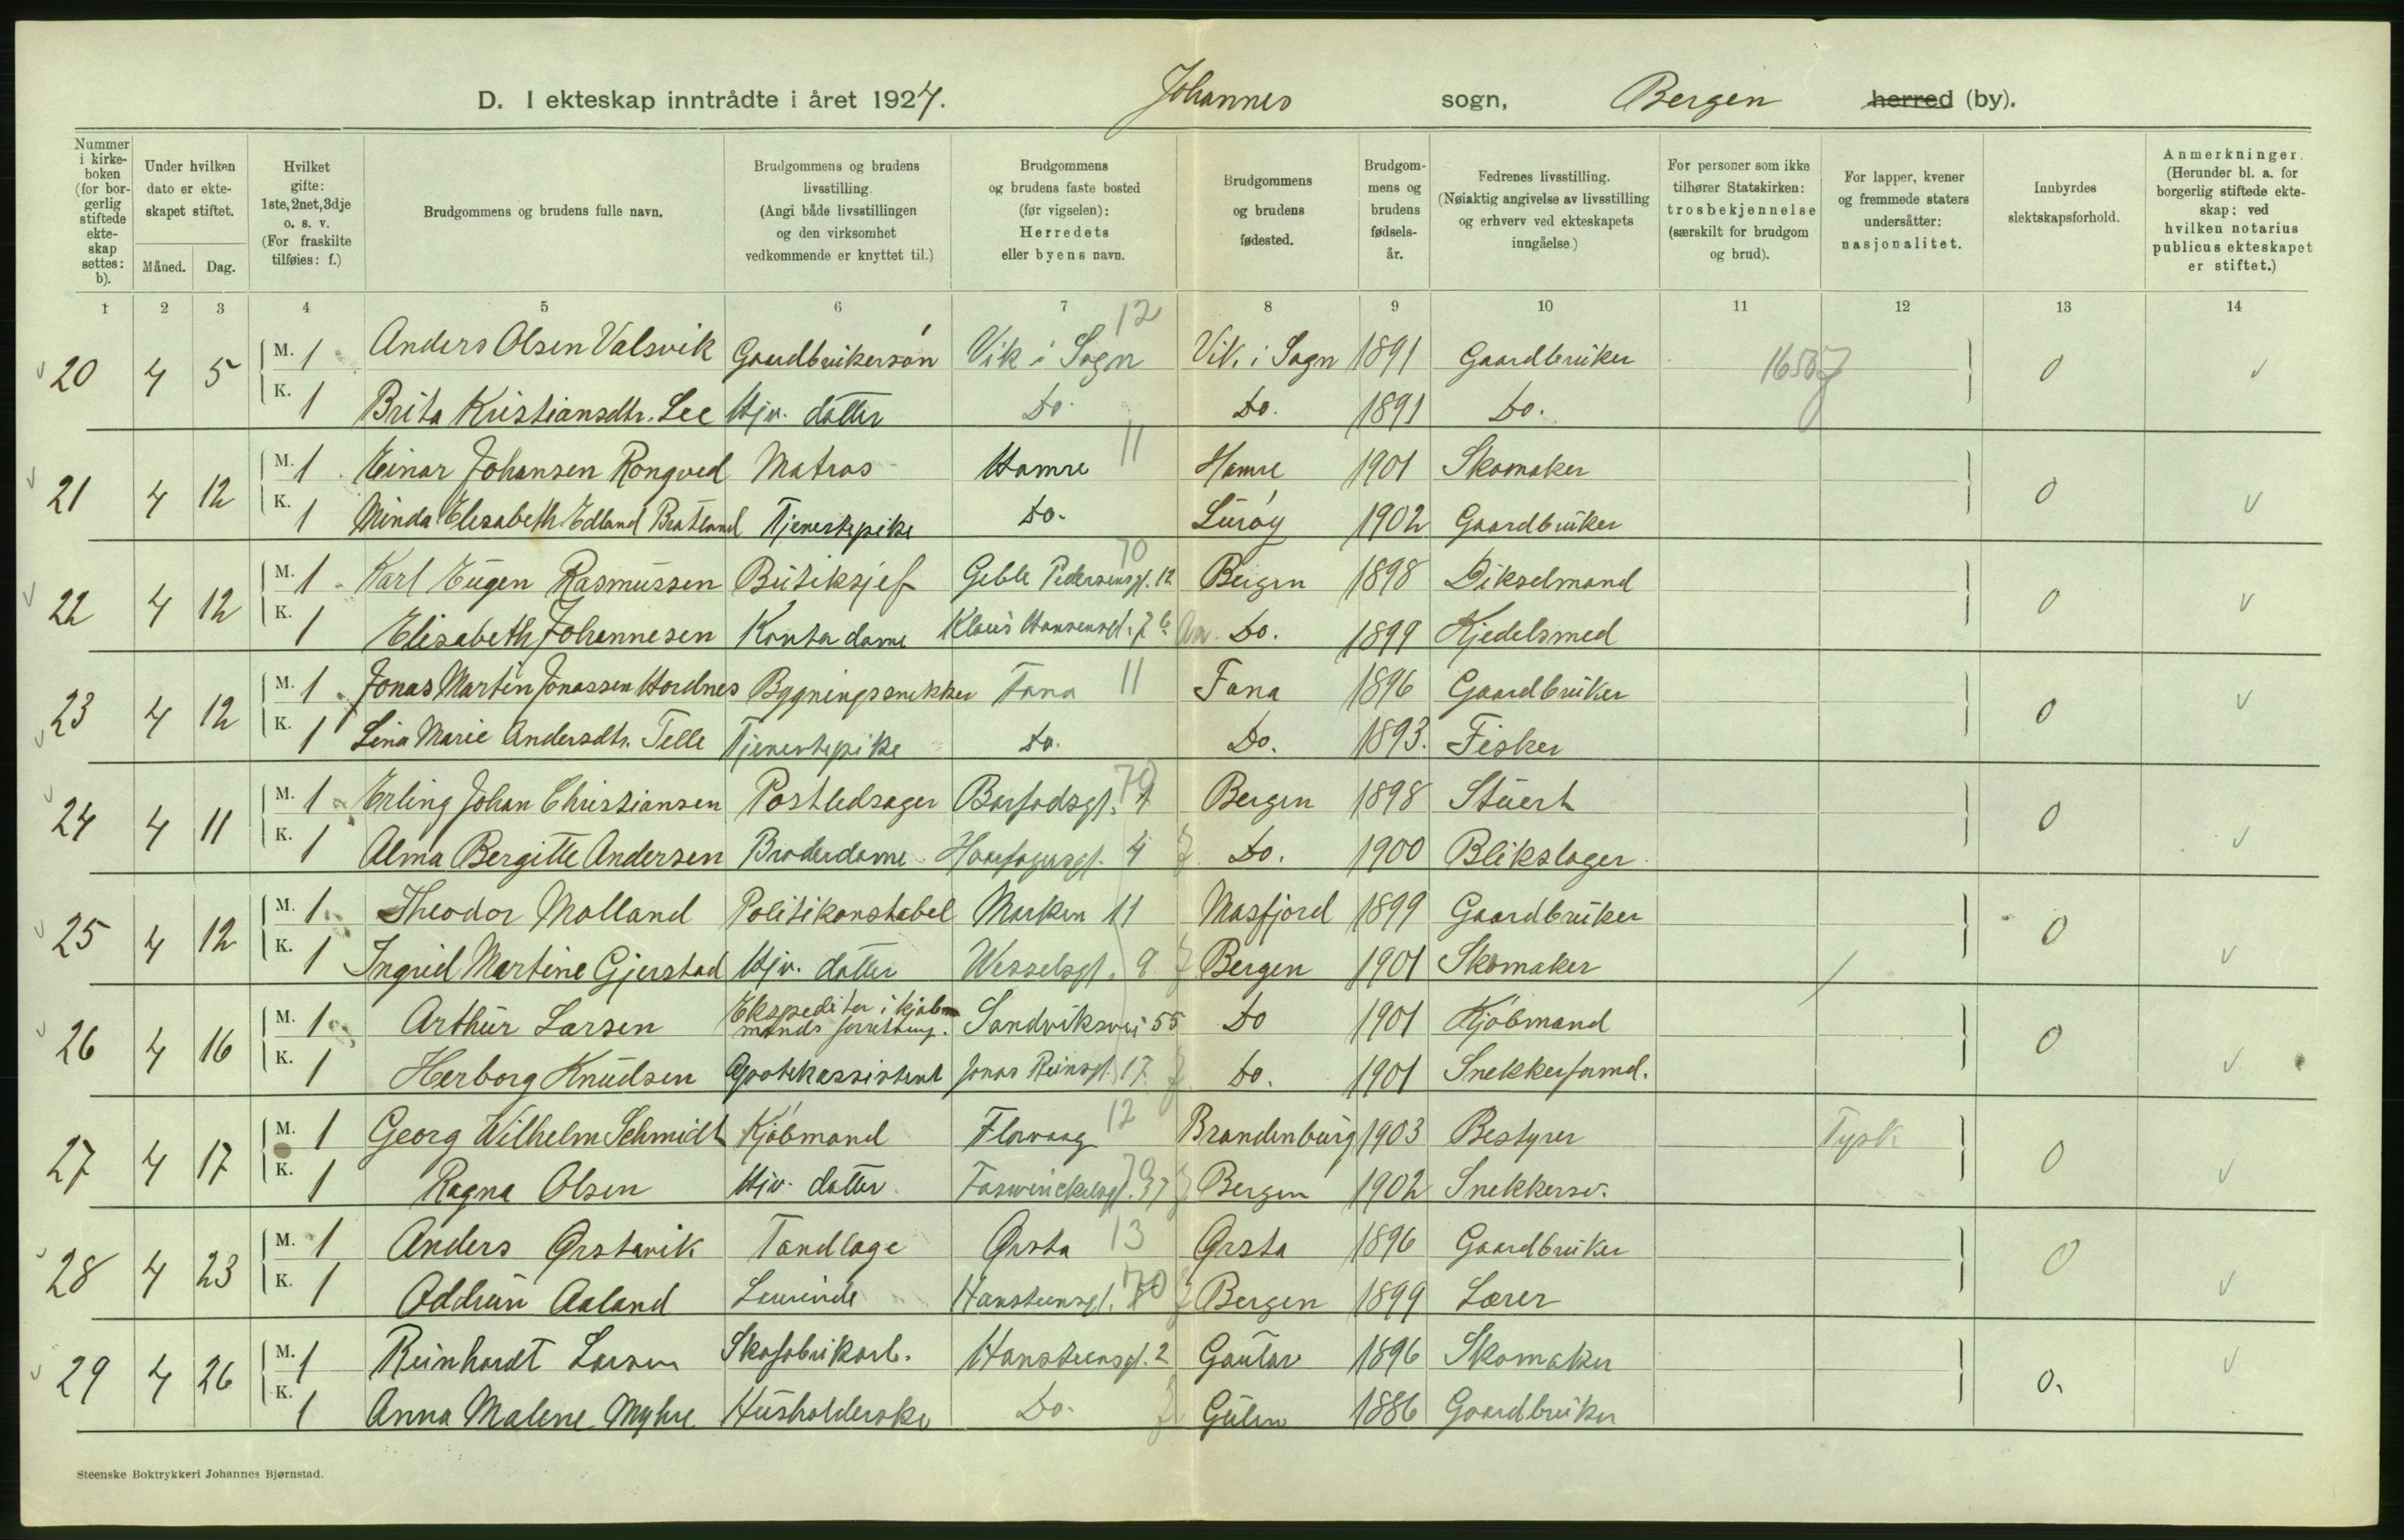 D. I ekteskap inntrådte i året 1924. Johannes sogn, Bergen herred (by).
Nummer i kirkeboken (for borgerlig stiftede ekteskap settes: b).
Under hvilken dato er ekteskapet stiftet.
Måned. Dag.
Hvilket gifte: 1ste, 2net, 3dje o. s. v. (For fraskilte tilføies: f.)
Brudgommens og brudens fulle navn.
Brudgommens og brudens livsstilling. (Angi både livsstillingen og den virksomhet vedkommende er knyttet til.)
Brudgommens og brudens faste bosted (før vigselen): Herredets eller byens navn.
Brudgommens og brudens fødested.
Brudgommens og brudens fødselsår.
Fedrenes livsstilling. (Nøiaktig angivelse av livsstilling og erhverv ved ekteskapets inngåelse.)
For personer som ikke tilhører Statskirken: trosbekjennelse (særskilt for brudgom og brud).
For lapper, kvener og fremmede staters undersåtter: nasjonalitet.
Innbyrdes slektskapsforhold.
Anmerkninger. (Herunder bl. a. for borgerlig stiftede ekteskap: ved hvilken notarius publicus ekteskapet er stiftet.)
1 2 3 4 5 6 7 8 9 10 11 12 13 14
20 4 5 M. 1 Anders Olsen Valsvik Gaardbrukersøn Vik i Sogn 12 Vik i Sogn 1891 Gaardbruker 0
K. 1 Brita Kristiansdtr. Lee Hjv. datter Do. Do. 1891 Do.
21 4 12 M. 1 Einar Johansen Rongved Matros Hamre 11 Hamre 1901 Skomaker 0
K. 1 Minda Elisabeth Edland Bratland Tjenestepike Do. Lurøy 1902 Gaardbruker
22 4 12 M. 1 Karl Eugen Rasmussen Butiksjef Geble Pedersensgt. 12 70 Bergen 1898 Dikselmand 0
K. 1 Elisabeth Johannesen Kontordame Klaus Hansensgt. 7 b Do. 1899 Kjedelsmed
23 4 12 M. 1 Jonas Martin Jonassen Hordnes Bygningssnekker Fana 11 Fana 1896 Gaardbruker 0
K. 1 Lina Marie Andersdtr. Telle Tjenestepike Do. Do. 1893. Fisker
24 4 11 M. 1 Erling Johan Christiansen Postledsager Barfodsgt. 70 Bergen 1898 Stuert 0
K. 1 Alma Bergitte Andersen Broderdame Haarfagersgt. 4 Do. 1900 Blikslager
25 4 12 M. 1 Theodor Molland Politikonstabel Marken 11 Masfjord 1899 Gaardbruker 0
K. 1 Ingrid Martine Gjerstad Hjv. datter Wesselsgt. 9 Bergen 1901 Skomaker
26 4 16 M. 1 Arthur Larsen Ekspeditør i kjøbmands forretning. Sandviksvei 55 Do 1901 Kjøbmand 0
K. 1 Herborg Knudsen Apotekassistent Jonas Reinsgt. 17 Do. 1901 Snekkerformd.
27 4 17 M. 1 Georg Wilhelm Schmidt Kjøbmand Florvaag 12 Brandenburg 1903 Bestyrer Tysk 0
K. 1 Ragna Olsen Hjv. datter Foswinckelsgt. 37 70 Bergen 1902 Snekkersv.
28 4 23 M. 1 Anders Ørstavik Tandlæge Ørsta 13 Ørsta 1896 Gaardbruker 0
K. 1 Oddrun Aaland Lærerinde Hansteensgt. 70 Bergen 1899 Lærer
29 4 26 M. 1 Reinhardt Larsen Skofabrikarb. Hansteensgt. 2 Gaular 1896 Skomaker 0.
K. 1 Anna Malene Myhre Husholderske Do. Gulen 1886 Gaardbruker
Steenske Boktrykkeri Johannes Bjørnstad.